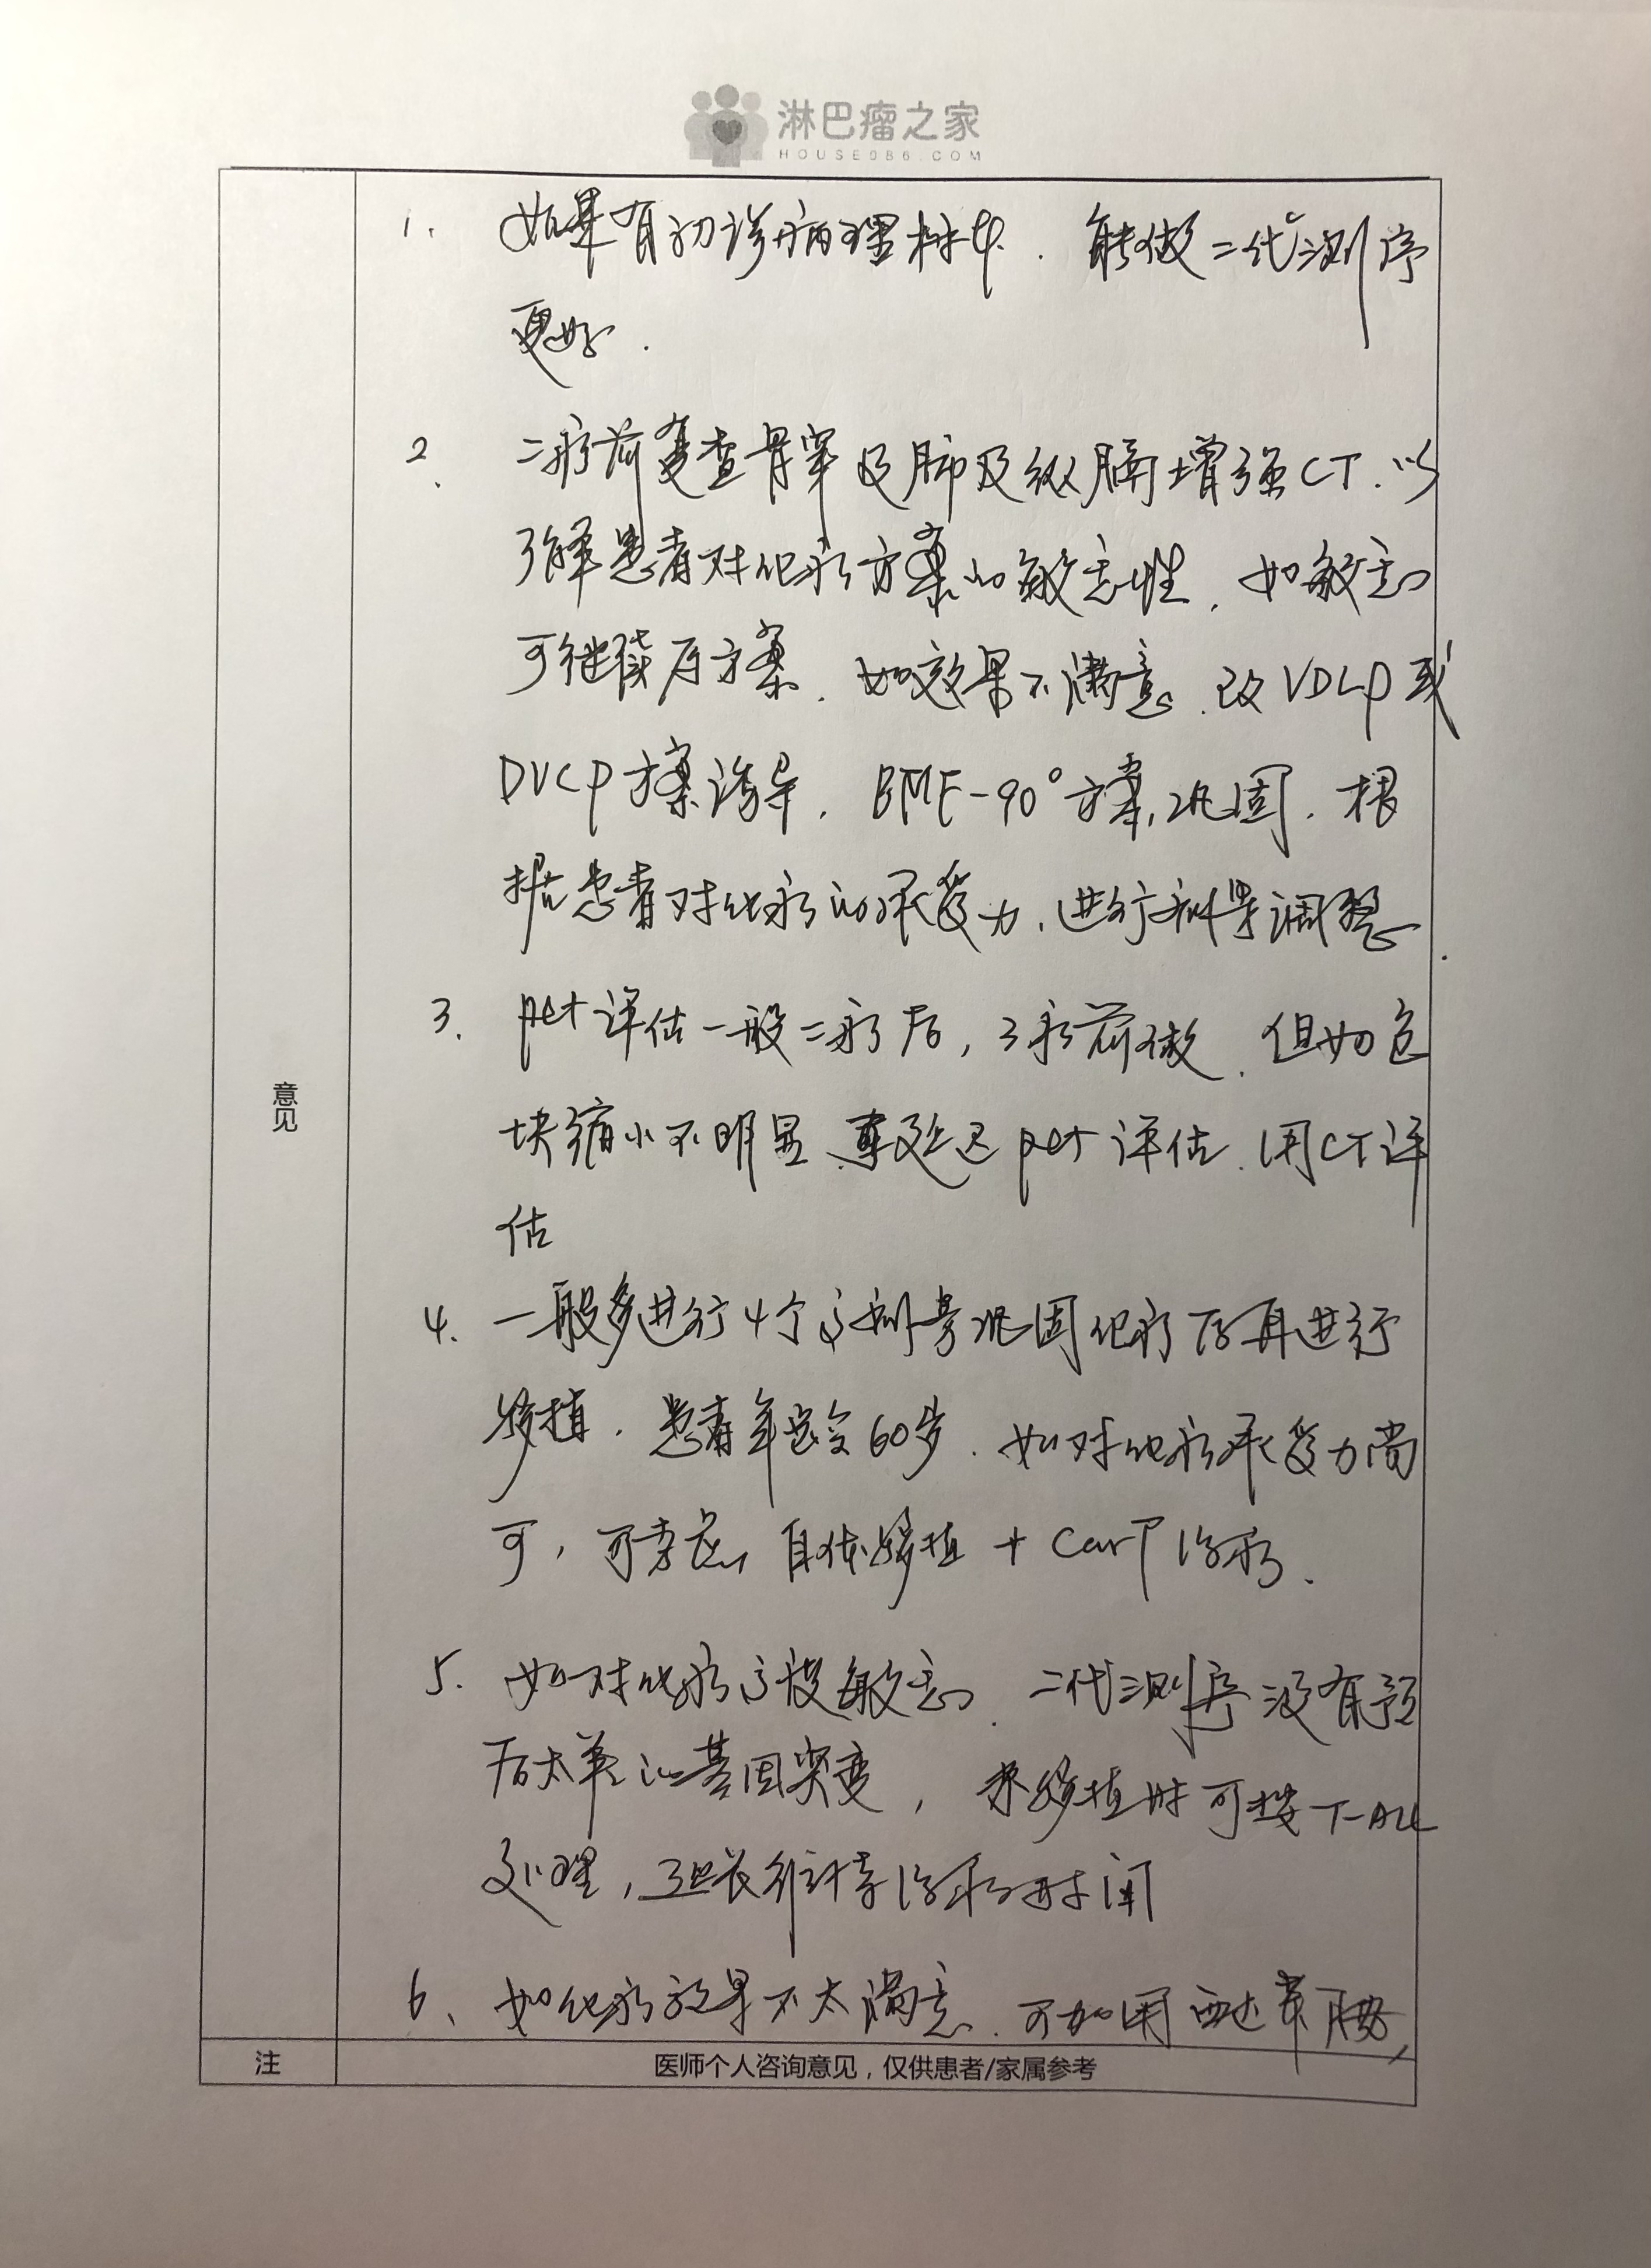 淋巴瘤之家
HOUSE086.COM
1. 如果有初诊病理标本. 能做二代测序
更好.
2. 二疗前复查骨穿及肺及纵膈增强CT. 以
了解患者对化疗方案的敏感性, 如敏感
可继续原方案. 如效果不满意. 改VDLP或
DVCP方案诱导. BMF-90°方案, 巩固. 根
据患者对化疗的承受力, 进行剂量调整.
3. pet评估一般二疗后, 3疗前做. 但如包
块缩小不明显. 延迟pet评估. 用CT评
估
4. 一般多进行4个剂量巩固化疗后再进行
移植. 患者年龄60岁. 如对化疗承受力尚
可, 可考虑自体移植 + CarT治疗.
5. 如对化疗敏感. 二代测序没有预
后太差的基因突变, 移植时可按T-ALL
处理, 延长维持治疗时间
6、如化疗效果不太满意. 可加用西达苯胺,
意见
注 医师个人咨询意见，仅供患者/家属参考